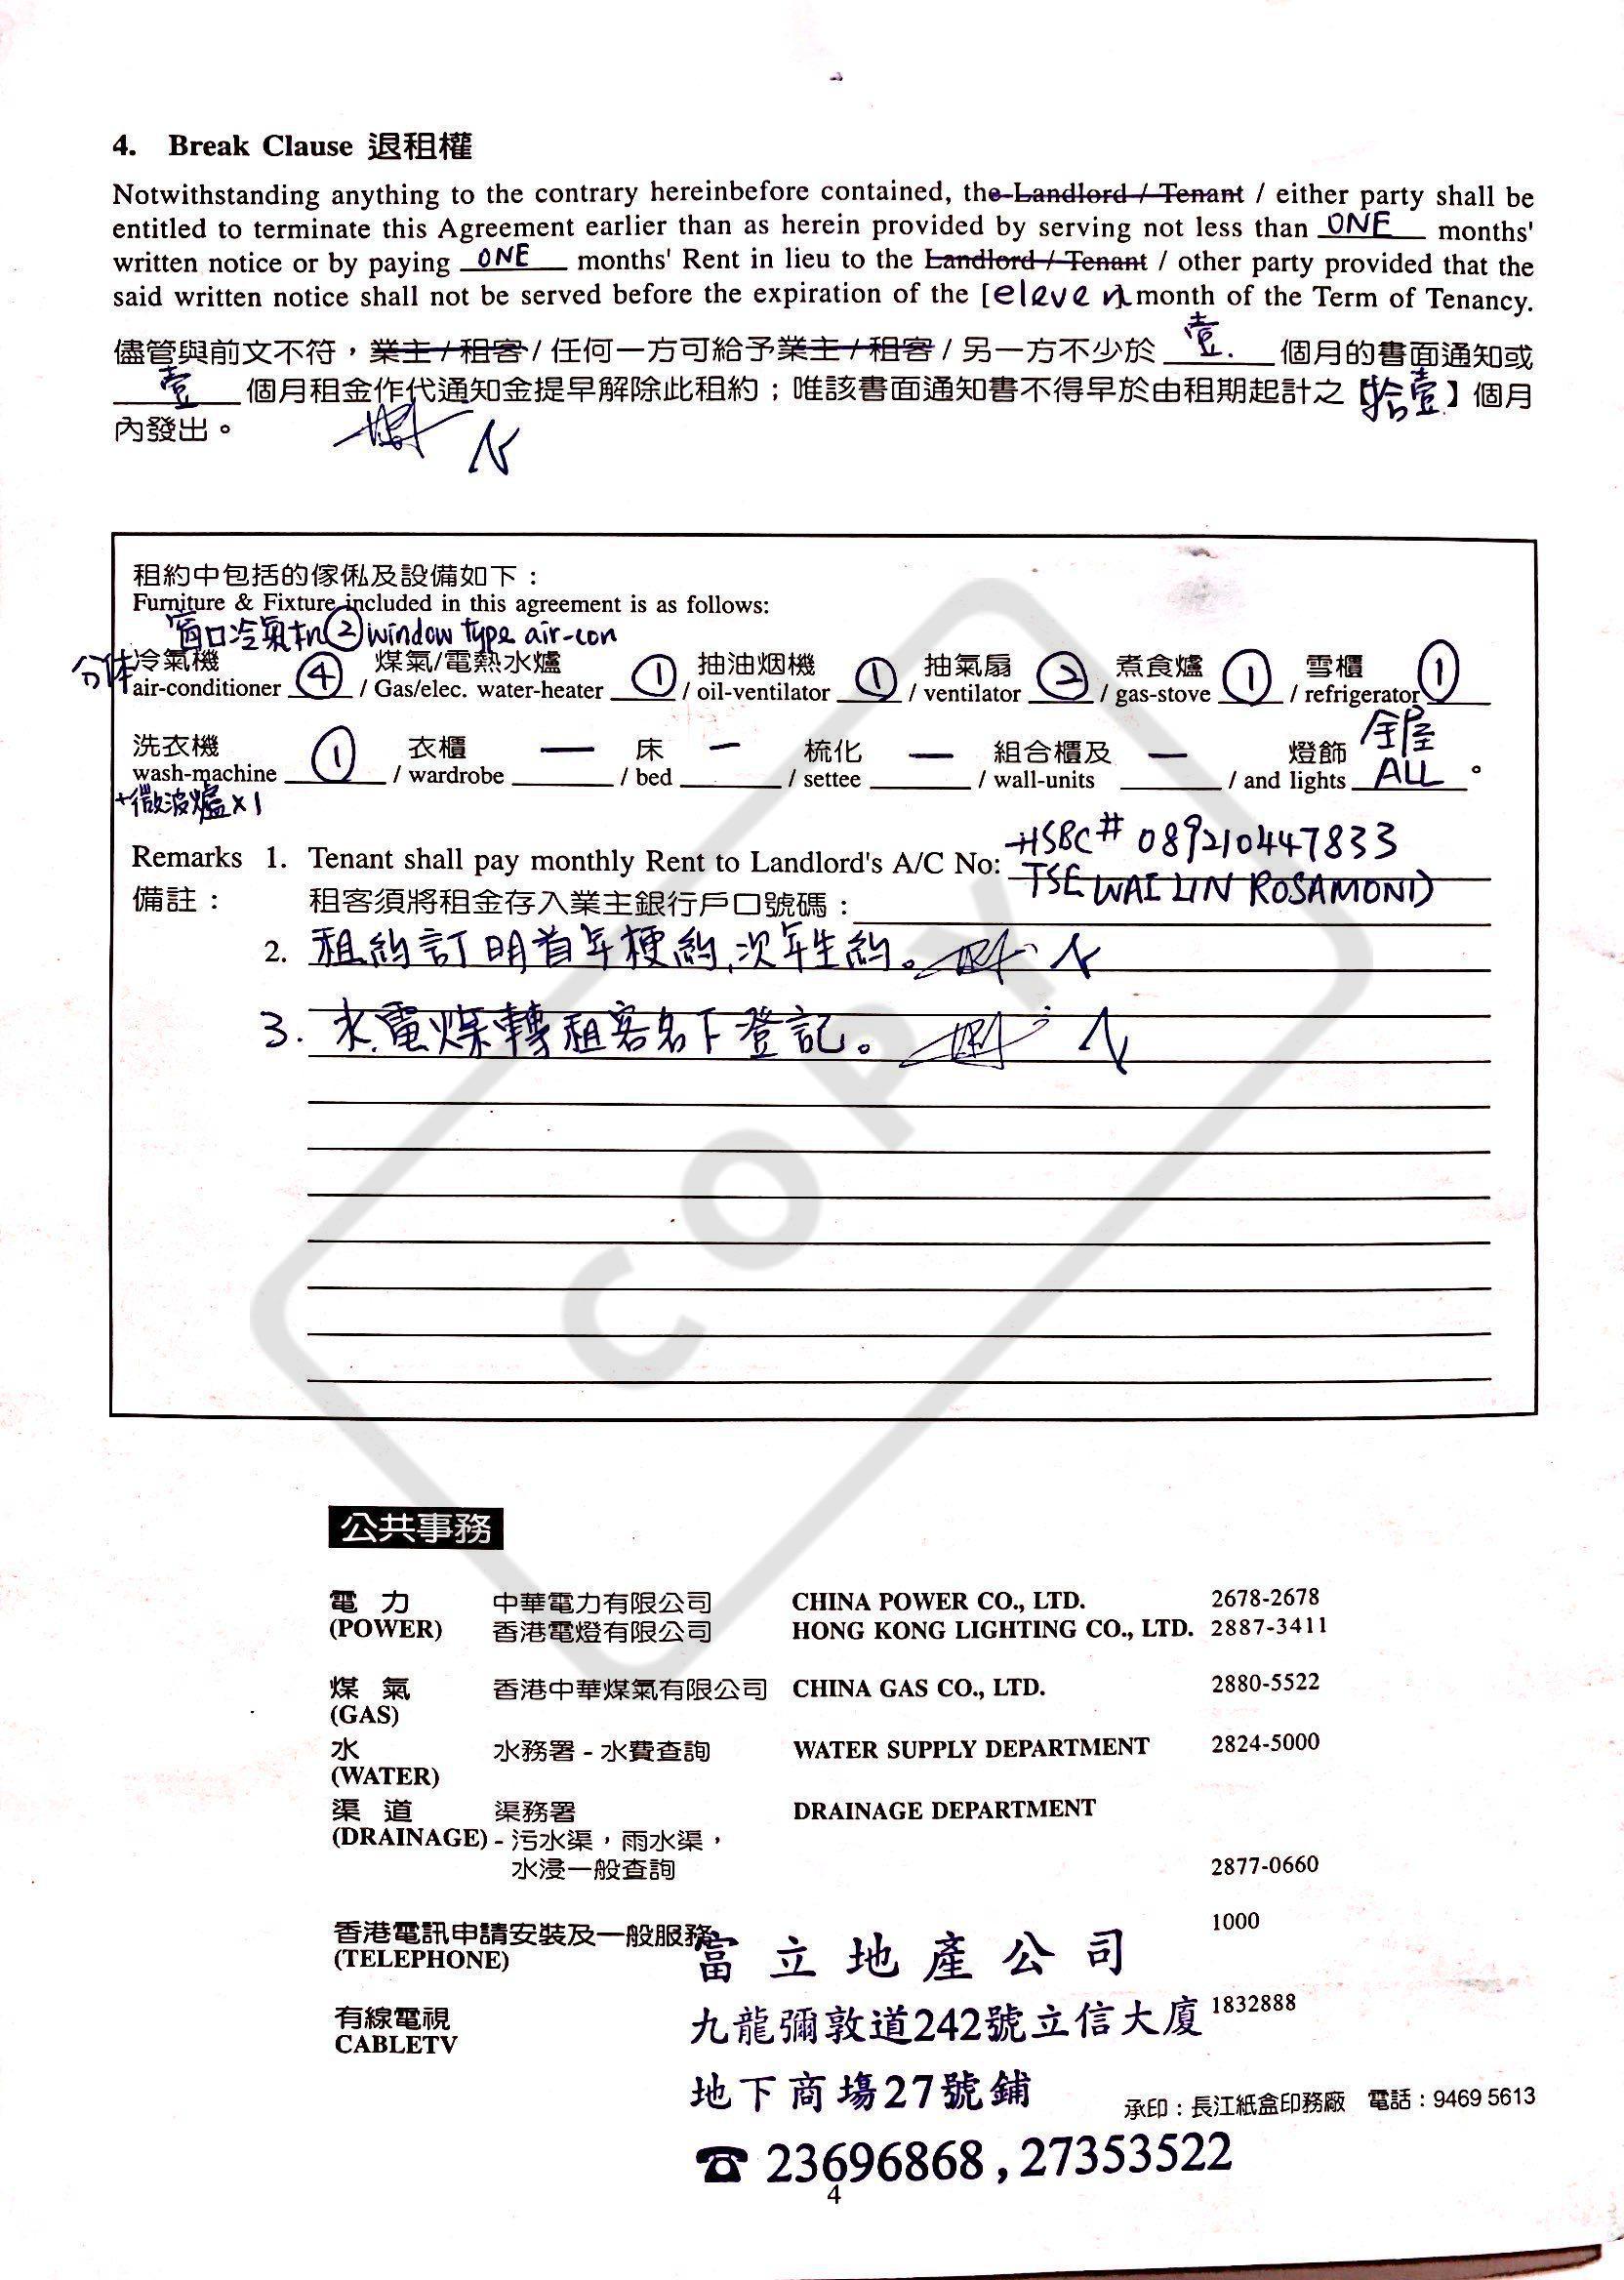 4. Break Clause 退租權
Notwithstanding anything to the contrary hereinbefore contained, the Landlord / Tenant / either party shall be
entitled to terminate this Agreement earlier than as herein provided by serving not less than ONE months'
written notice or by paying ONE months' Rent in lieu to the Landlord / Tenant / other party provided that the
said written notice shall not be served before the expiration of the [eleven] month of the Term of Tenancy.
儘管與前文不符，業主/租客/任何一方可給予業主/租客/另一方不少於 壹. 個月的書面通知或
壹 個月租金作代通知金提早解除此租約；唯該書面通知書不得早於由租期起計之【拾壹】個月
內發出。
租約中包括的傢俬及設備如下：
Furniture & Fixture included in this agreement is as follows:
窗口冷氣机 ② window type air-con
分体冷氣機 煤氣/電熱水爐 抽油烟機 抽氣扇 煮食爐 雪櫃
air-conditioner ④ / Gas/elec. water-heater ① / oil-ventilator ① / ventilator ② / gas-stove ① / refrigerator ①
洗衣機 衣櫃 — 床 — 梳化 — 組合櫃及 — 燈飾 全屋
wash-machine ① / wardrobe / bed / settee / wall-units / and lights ALL 。
+微波爐x1
HSBC# 089210447833
Remarks 1. Tenant shall pay monthly Rent to Landlord's A/C No:
TSE WAI LIN ROSAMOND
備註： 租客須將租金存入業主銀行戶口號碼：
2. 租約訂明首年梗約,次年生約。
3. 水.電煤轉租客名下登記。
COPY
公共事務
電力 中華電力有限公司 CHINA POWER CO., LTD. 2678-2678
(POWER) 香港電燈有限公司 HONG KONG LIGHTING CO., LTD. 2887-3411
煤氣 香港中華煤氣有限公司 CHINA GAS CO., LTD. 2880-5522
(GAS)
水 水務署 - 水費查詢 WATER SUPPLY DEPARTMENT 2824-5000
(WATER)
渠道 渠務署 DRAINAGE DEPARTMENT
(DRAINAGE) - 污水渠，雨水渠，
水浸一般查詢 2877-0660
香港電訊申請安裝及一般服務 1000
(TELEPHONE)
富立地產公司
有線電視 1832888
CABLETV
九龍彌敦道242號立信大廈
地下商場27號鋪
承印：長江紙盒印務廠 電話：9469 5613
☎ 23696868 , 27353522
4